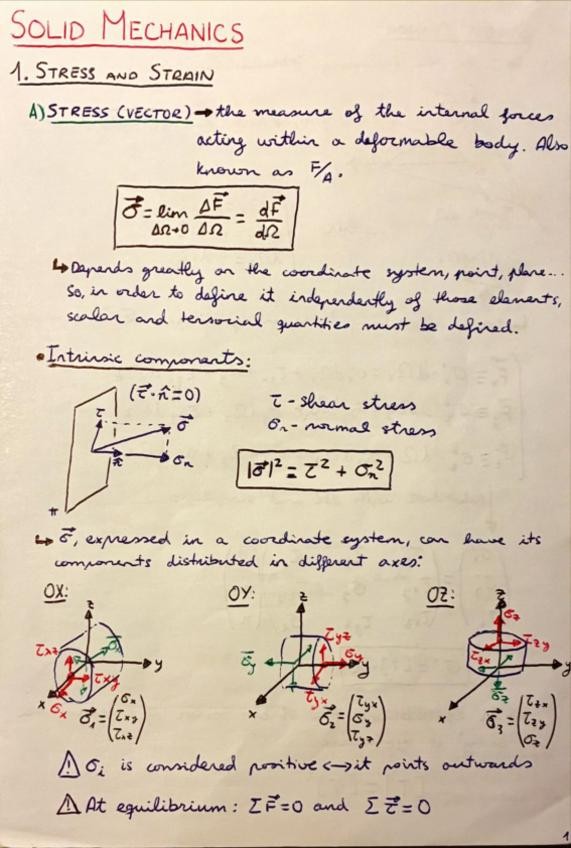 SOLID MECHANICS
1. STRESS AND STRAIN
A) STRESS (VECTOR) → the measure of the internal forces
acting within a deformable body. Also
known as F/A.
σ⃗ = lim ΔΩ→0 ΔF⃗/ΔΩ = dF⃗/dΩ
↳ Depends greatly on the coordinate system, point, plane...
So, in order to define it independently of those elements,
scalar and tensorial quantities must be defined.
• Intrinsic components:
(τ⃗ · n̂ = 0)
τ
σ⃗
n̂
σn
π
τ - shear stress
σn - normal stress
|σ⃗|² = τ² + σn²
↳ σ⃗, expressed in a coordinate system, can have its
components distributed in different axes:
OX: OY: OZ:
z σ⃗x τxz y τxy x σx σ⃗1 = (σx τxy τxz)
z τyz σ⃗y σy y x τyx σ⃗2 = (τyx σy τyz)
z σz τzy τzx y σ⃗z x σ⃗3 = (τzx τzy σz)
⚠ σi is considered positive ↔ it points outwards
⚠ At equilibrium: ΣF⃗ = 0 and Στ⃗ = 0
1